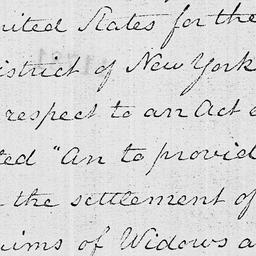 nited States for the
istrict of New York
respect to an Act
ted "An to provid
the settlement of
aims of Widows a